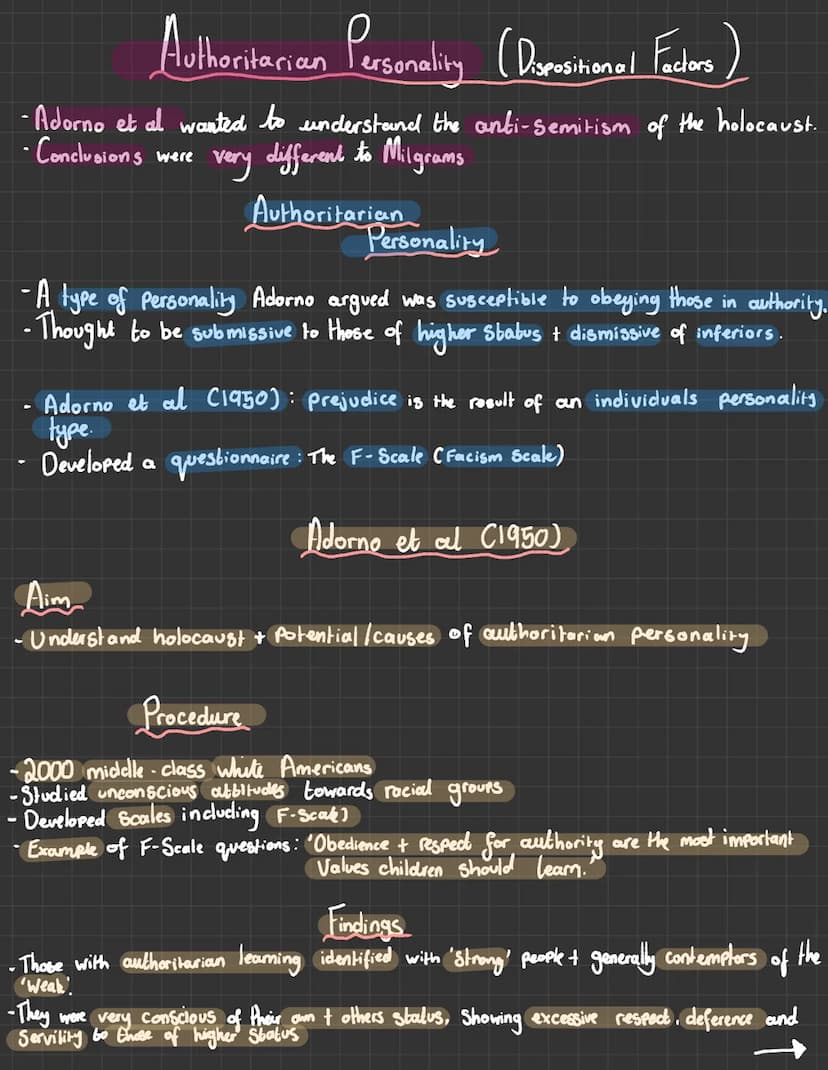 Authoritarian Personality (Dispositional Factors)
- Adorno et al wanted to understand the anti-semitism of the holocaust.
- Conclusions were very different to Milgrams
Authoritarian
Personality
- A type of personality Adorno argued was susceptible to obeying those in authority.
- Thought to be submissive to those of higher status + dismissive of inferiors.
- Adorno et al (1950): prejudice is the result of an individuals personality
type.
- Developed a questionnaire: The F-Scale (Facism Scale)
Adorno et al (1950)
Aim
- Understand holocaust + Potential/causes of authoritarian personality
Procedure
- 2000 middle-class white Americans
- Studied unconscious attitudes towards racial groups
- Developed Scales including F-Scale)
- Example of F-Scale questions: 'Obedience + respect for authority are the most important
Values children should learn.'
Findings
- Those with authoritarian learning identified with 'strong' people + generally contemptors of the
'Weak'.
- They were very conscious of their own + others status, showing excessive respect, deference and
Servility to those of higher status